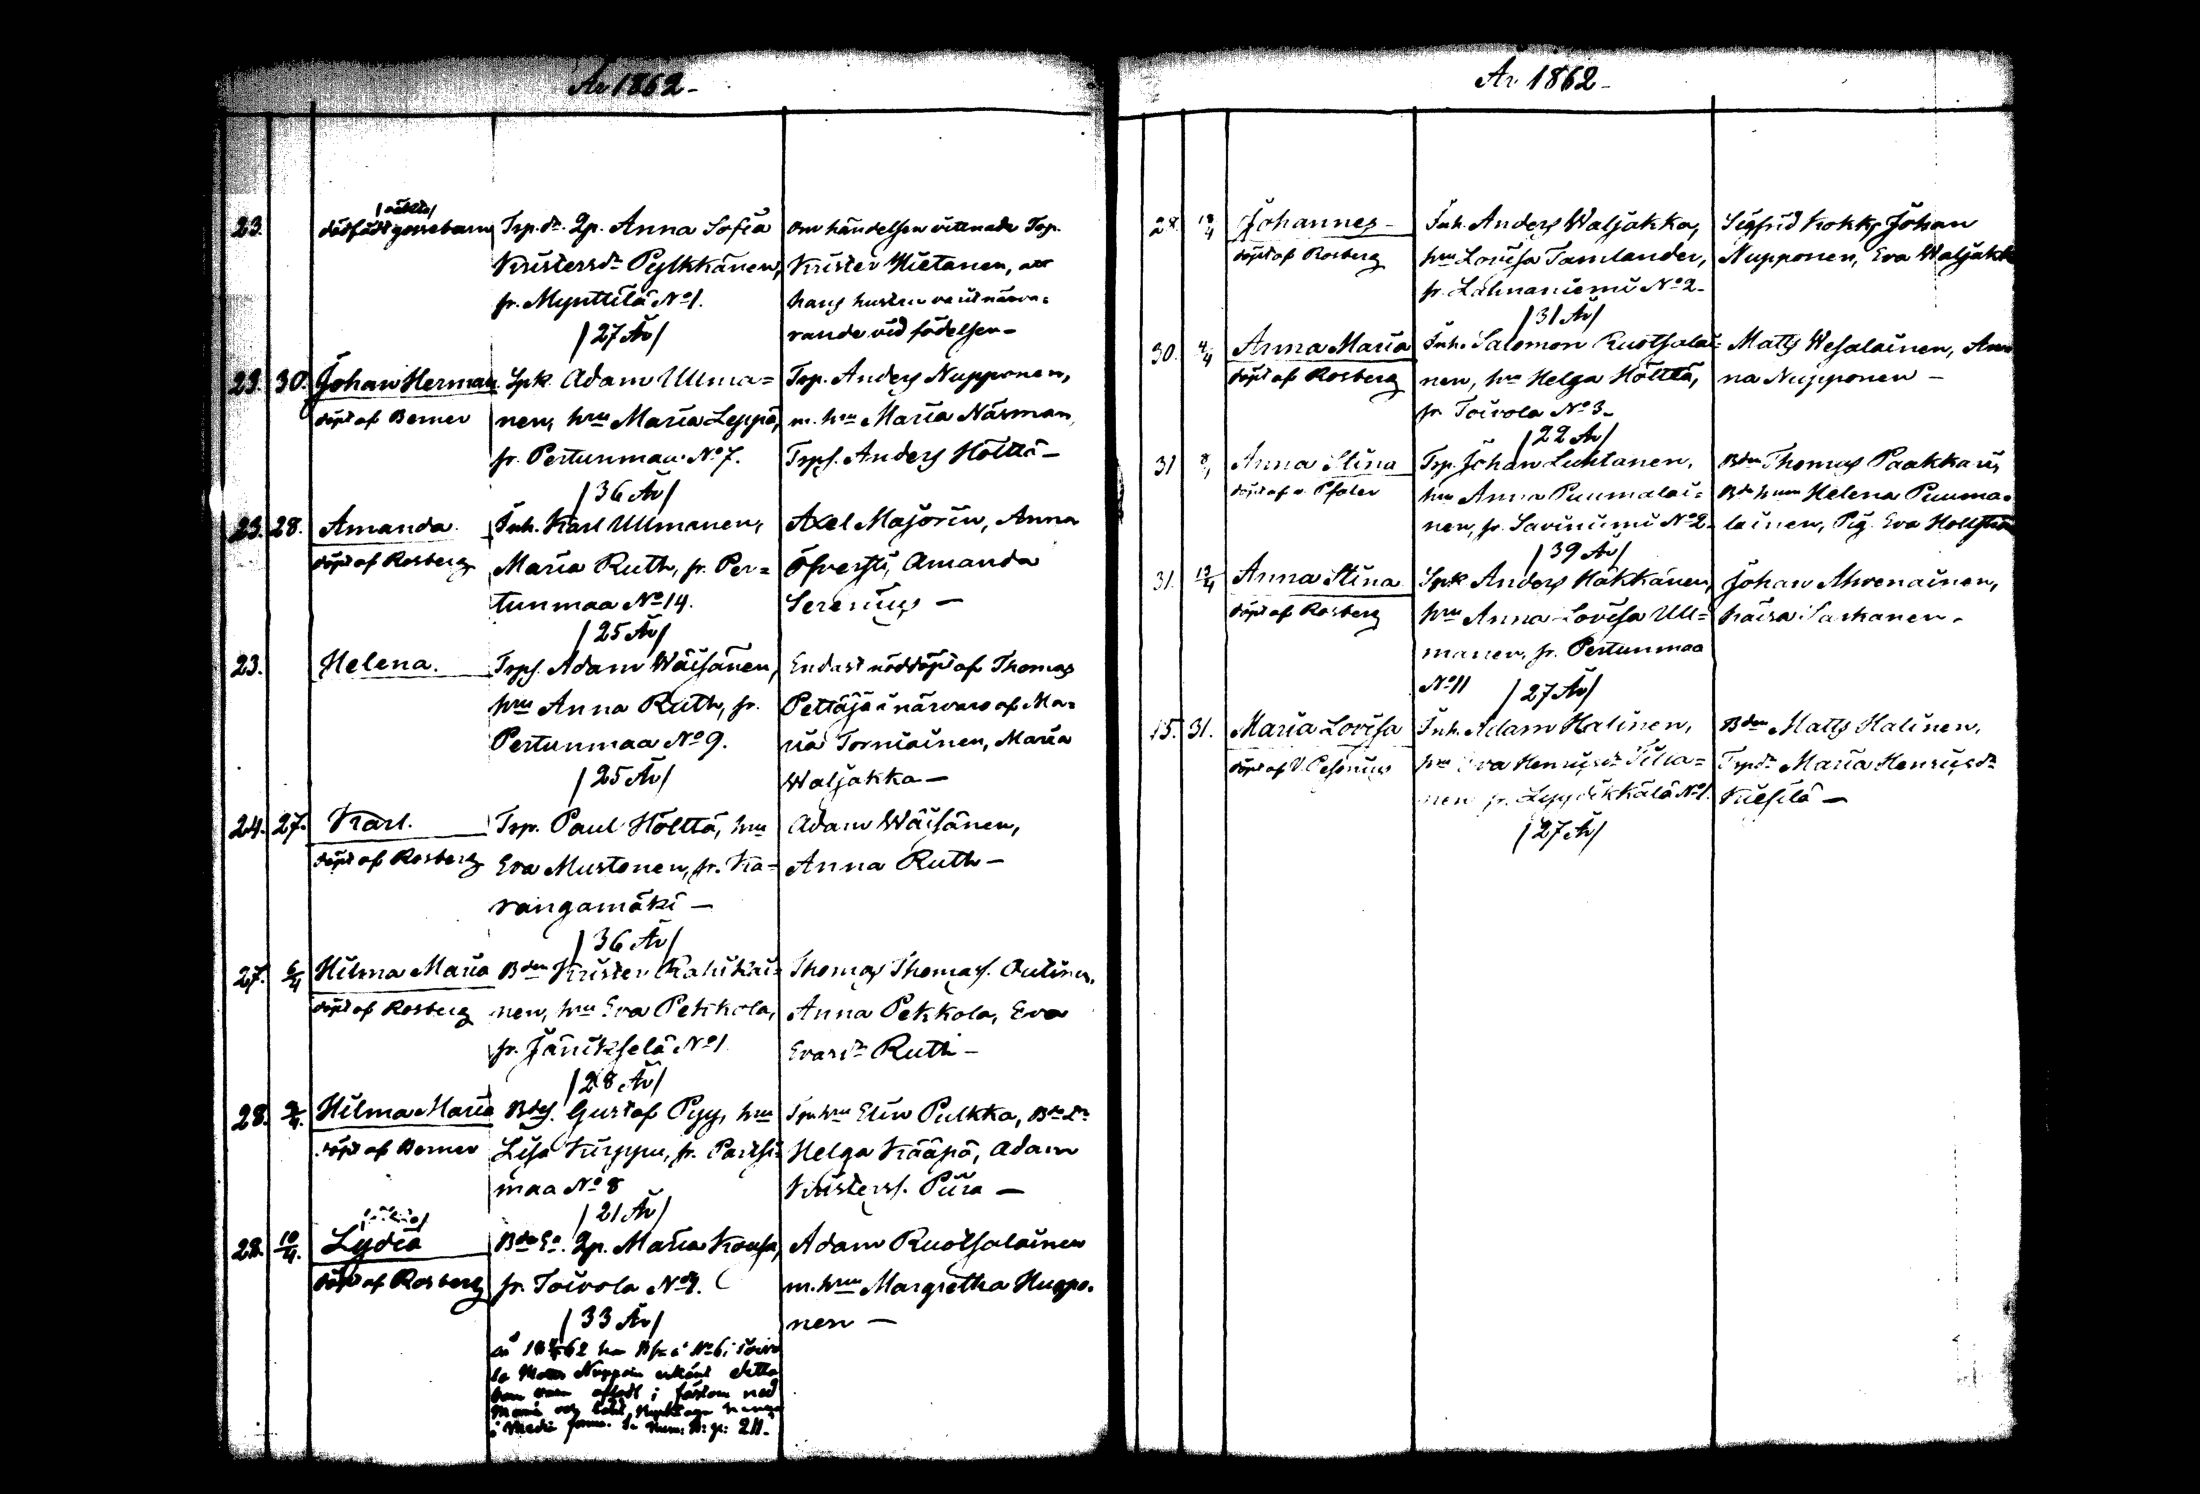 År 1862 -
23.
/oäkta/
dödfödt gossebarn
Trp.dr. Qp. Anna Sofia
Kristersdr Pylkkänen,
fr. Mynttilä No 1.
/27 År/
Om händelsen vittnade Trp.
Krister Hietanen, att
hans hustru varit närva=
rande vid födelsen -
23. 30. Johan Herman
döpt af Berner
Spk. Adam Ullma=
nen, hru Maria Leppä,
fr. Pertunmaa No 7.
/36 År/
Trp. Anders Nupponen,
m. hru Maria Näsman,
Trps. Anders Hölttä -
23. 28. Amanda.
döpt af Rosberg
Inh. Karl Ullmanen,
Maria Ruth, fr. Per=
tunmaa No 14.
/25 År/
Axel Majorin, Anna
Öfversti, Amanda
Serenius -
23. Helena.
Trps. Adam Wäisänen,
hru Anna Ruth, fr.
Pertunmaa No 9.
/25 År/
Endast nöddöpt af Thomas
Pettäjä i närvaro af Ma=
ria Torniainen, Maria
Waljakka -
24. 27. Karl.
döpt af Rosberg
Trp. Paul Hölttä, hru
Eva Mustonen, fr. Ka=
rangamäki -
/36 År/
Adam Wäisänen,
Anna Ruth -
27. 6/4 Hilma Maria
döpt af Rosberg
Bden Krister Kahikai=
nen, hru Eva Pekkola,
fr. Jänikselä No 1.
/28 År/
Thomas Thomass. Outinen,
Anna Pekkola, Eva
Evasdr Ruth -
28. 2/4. Hilma Maria
döpt af Berner
Bdes. Gustaf Pyy, hru
Lisa Kurppu, fr. Partsi=
maa No 8
/21 År/
hru Elin Pulkka, Bde dr
Helga Kääpä, Adam
Kristerss. Piira -
28. 10/4. Lydia
döpt af Rosberg
Qp. Maria
fr. Toivola No
/33 År/
Adam Ruotsalainen
m. hru Margretha Huppo=
nen -
År 1862 -
28. /4 Johannes -
döpt af Rosberg
Inh. Anders Waljakka,
hru Lovisa Tamlander,
fr. Lahnaniemi No 2 -
/31 År/
Sigfrid Kokki, Johan
Nupponen, Eva Waljakk
30. 4/4 Anna Maria
döpt af Rosberg
Inh. Salomon Ruotsalai=
nen, hru Helga Hölttä,
fr. Toivola No 3 -
/22 År/
Matts Wesalainen, An
na Nupponen -
31 Anna Stina
döpt af v. Pfaler
Trp. Johan Luhtanen,
hru Anna Puumalai=
nen, fr. Saviniemi No 2 -
/39 År/
Bden Thomas Paakkari,
Bde hrun Helena Puuma=
lainen, Pig. Eva
31. 13/4 Anna Stina
döpt af Rosberg
Spk. Anders Häkkänen,
hru Anna Lovisa Ull=
manen, fr. Pertunmaa
No 11 /27 År/
Johan Ahvenainen,
Kaisa Sarkanen -
15. 31. Maria Lovisa
döpt af V. Pesonius
Inh. Adam Halinen,
hru Eva Henricsdr
nen fr. Leppäkkälä No 1.
/27 År/
Bden Matts Halinen,
Trpdr Maria Henricsdr
Kiesilä -